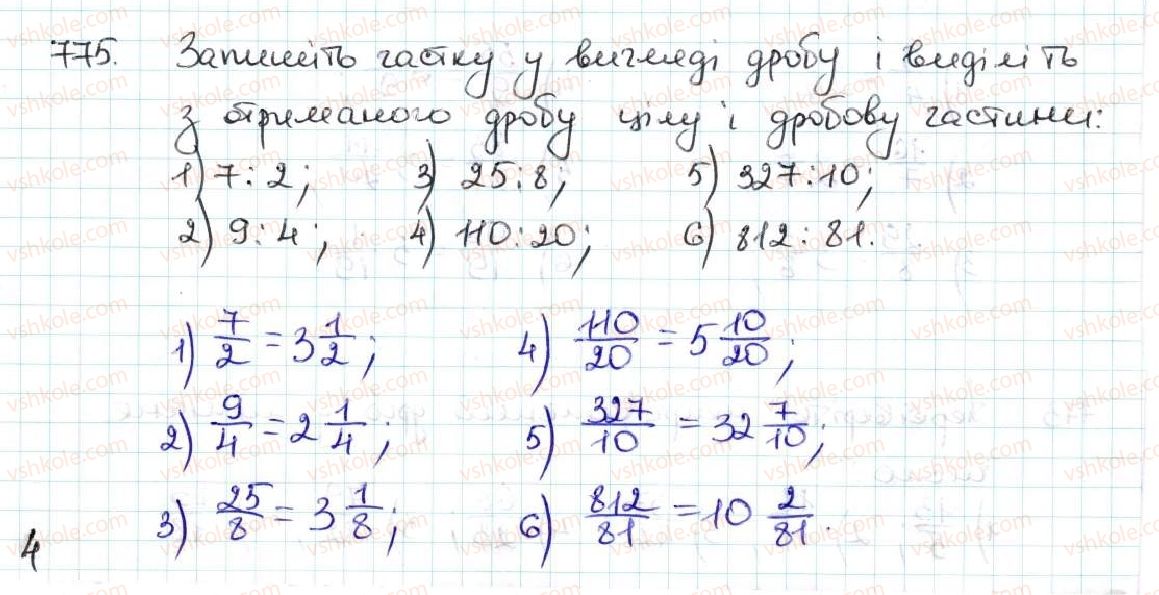 775. Запишіть частку у вигляді дробу і виділіть
з отриманого дробу цілу і дробову частини:
1) 7:2; 3) 25:8; 5) 327:10;
2) 9:4; 4) 110:20; 6) 812:81.
1) 7/2 = 3 1/2; 4) 110/20 = 5 10/20;
2) 9/4 = 2 1/4; 5) 327/10 = 32 7/10;
3) 25/8 = 3 1/8; 6) 812/81 = 10 2/81.
4
vshkole.com